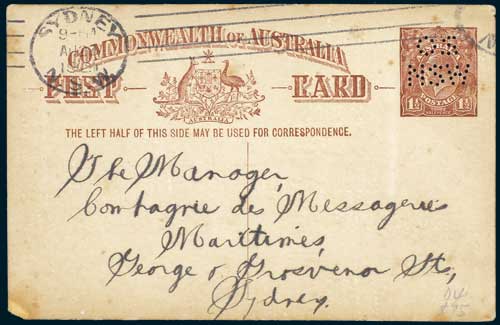 SYDNEY
COMMONWEALTH OF AUSTRALIA
POST CARD
AUSTRALIA
POSTAGE
1½ 1½
OS
NSW
THE LEFT HALF OF THIS SIDE MAY BE USED FOR CORRESPONDENCE.
The Manager
Compagnie des Messageries
Maritimes
George & Grosvenor Sts,
Sydney.